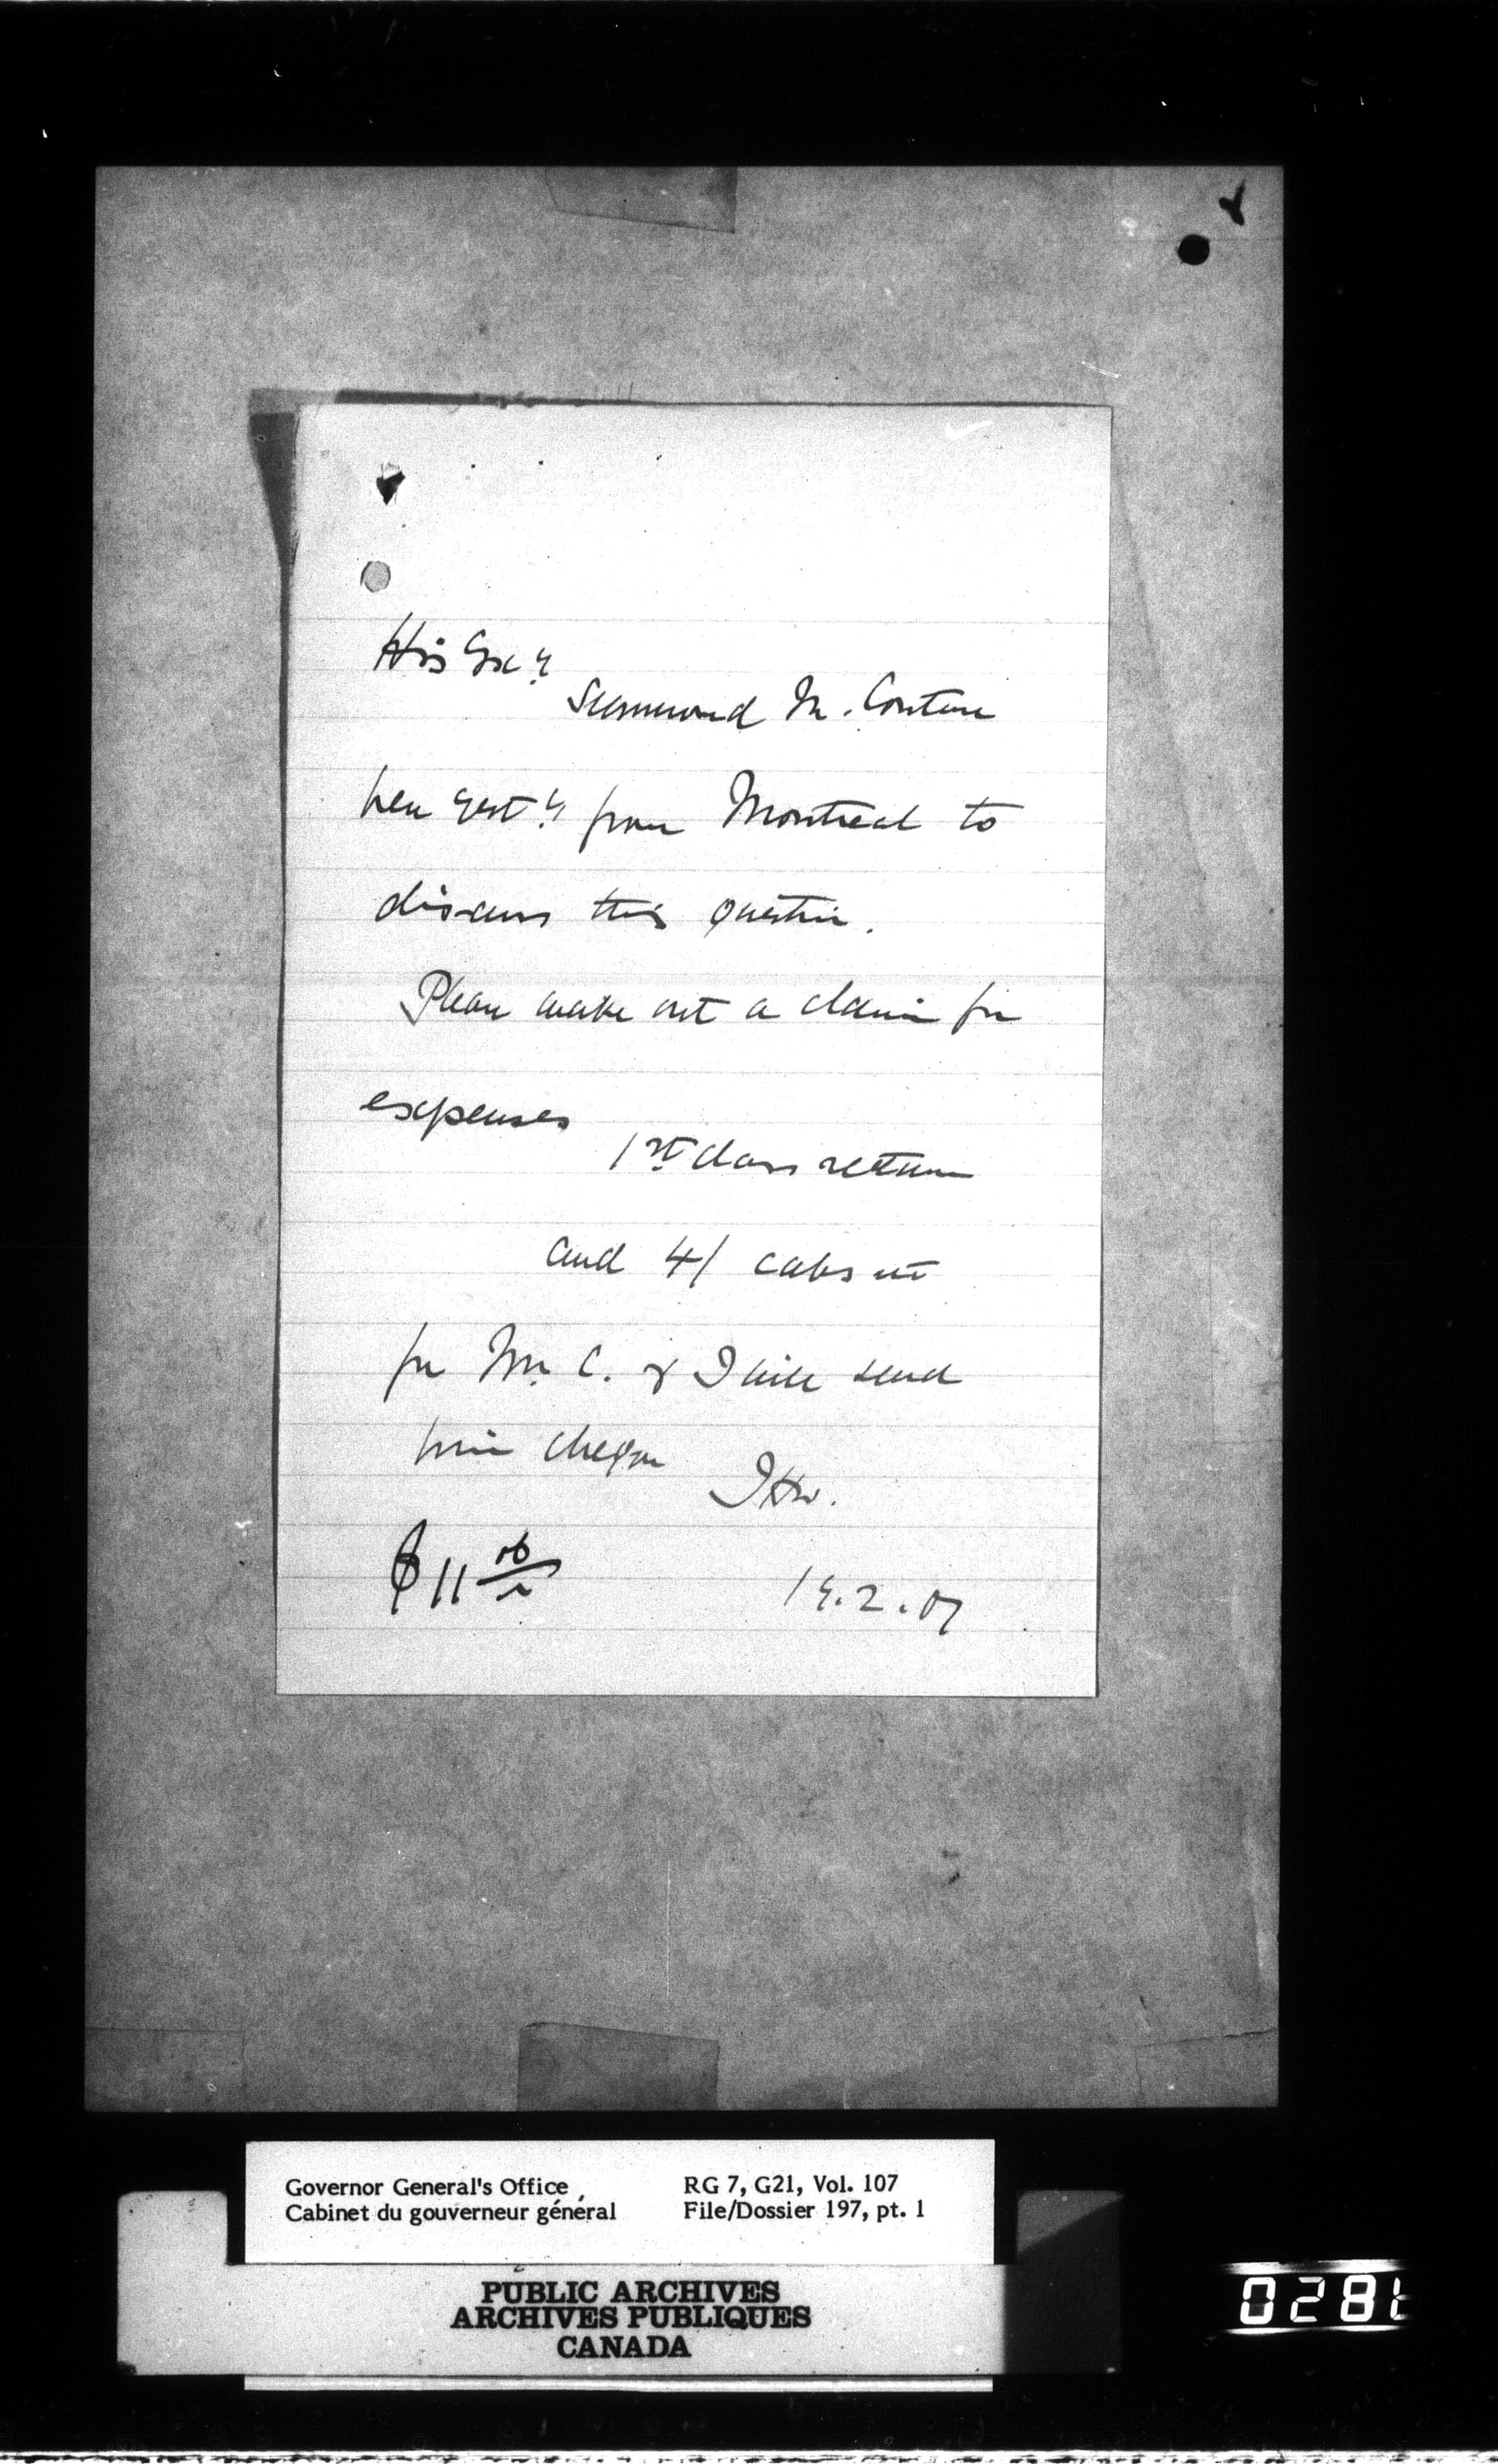 His Exc.y
Summoned M. Couture
here yest.y from Montreal to
discuss this question.
Please make out a claim for
expenses
1st class return
and 4/ cabs etc
for Mr. C. & I will send
him cheque
$11
19.2.07
Governor General's Office
Cabinet du gouverneur général
RG 7, G21, Vol. 107
File/Dossier 197, pt. 1
PUBLIC ARCHIVES
ARCHIVES PUBLIQUES
CANADA